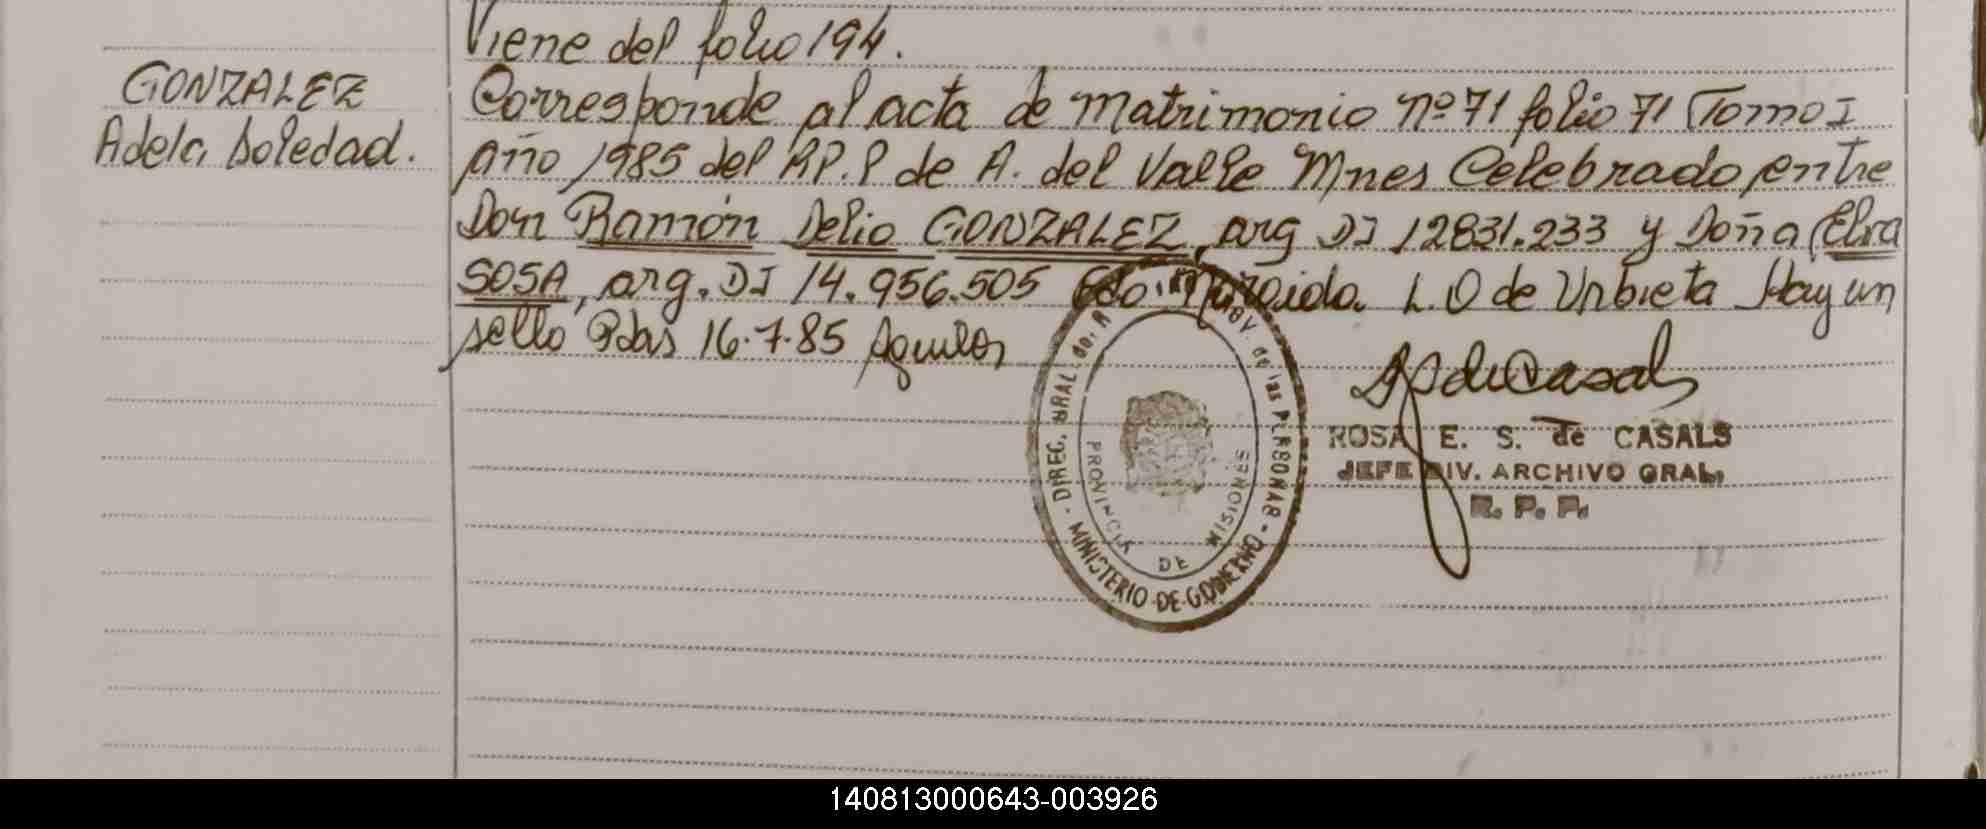 Viene del folio 194.
GONZALEZ
Adela Soledad.
Corresponde al acta de matrimonio nº 71 folio 71 Tomo I
año 1985 del RP.P de A. del Valle Mnes Celebrado entre
Don Ramón Delio GONZALEZ, arg DI 12831.233 y Doña Elva
SOSA, arg. DI 14.956.505 Fdo. L. O de Urbieta Hay un
sello Pdas 16.7.85
ROSA E. S. de CASALS
JEFE DIV. ARCHIVO GRAL.
R. P. P.
MINISTERIO DE GOBIERNO
PROVINCIA DE MISIONES
140813000643-003926